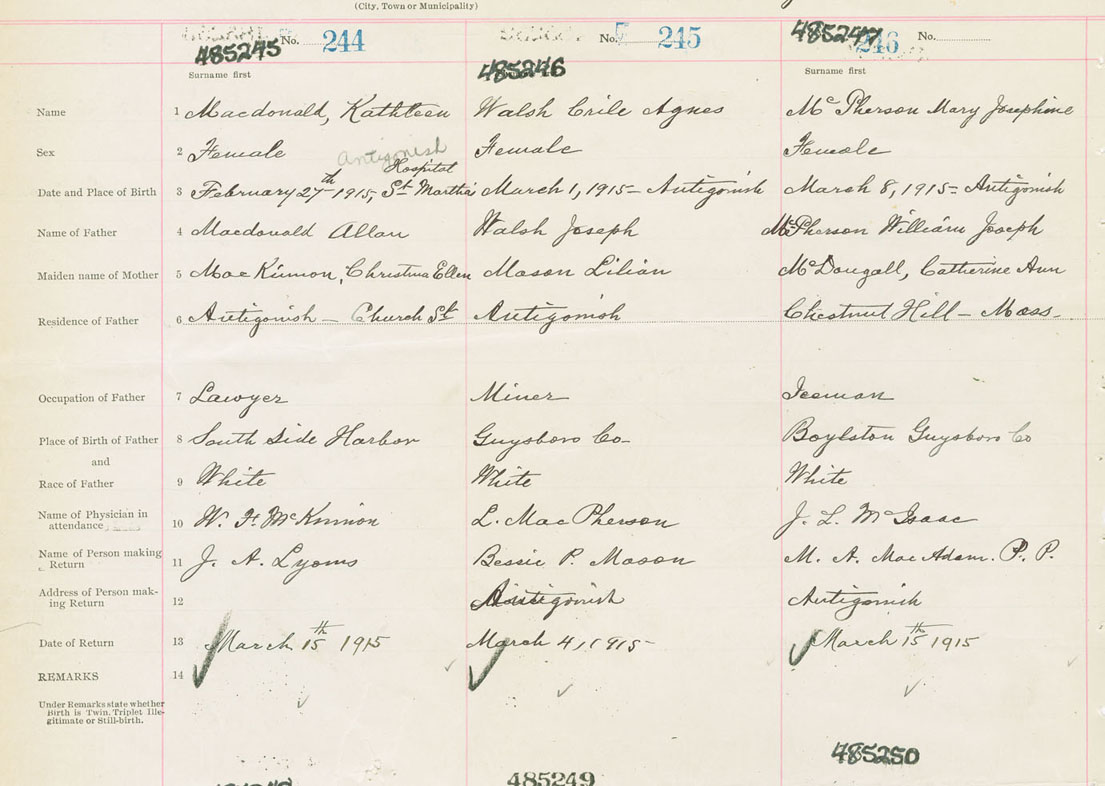 (City, Town or Municipality)
No. 244 No. 245 246 No.
485245 485246 485247
Surname first Surname first
Name 1 Macdonald, Kathleen Walsh Crile Agnes Mc Pherson Mary Josephine
Sex 2 Female Female Female
Antigonish
Hospital
Date and Place of Birth 3 February 27th 1915, St Martha's March 1, 1915 - Antigonish March 8, 1915 - Antigonish
Name of Father 4 Macdonald Allan Walsh Joseph McPherson William Joseph
Maiden name of Mother 5 MacKinnon, Christina Ellen Mason Lilian McDougall, Catherine Ann
Residence of Father 6 Antigonish - Church St Antigonish Chestnut Hill - Mass.
Occupation of Father 7 Lawyer Miner Iceman
Place of Birth of Father 8 South Side Harbor Guysboro Co Boylston Guysboro Co
and
Race of Father 9 White White White
Name of Physician in
attendance 10 W. F. McKinnon L. MacPherson J. L. McIsaac
Name of Person making
Return 11 J. A. Lyons Bessie P. Mason M. A. MacAdam. P. P.
Address of Person mak-
ing Return 12 Antigonish Antigonish
Date of Return 13 March 15th 1915 March 4, 1915 - March 15th 1915
REMARKS 14
Under Remarks state whether
Birth is Twin, Triplet Ille-
gitimate or Still-birth.
485249 485250